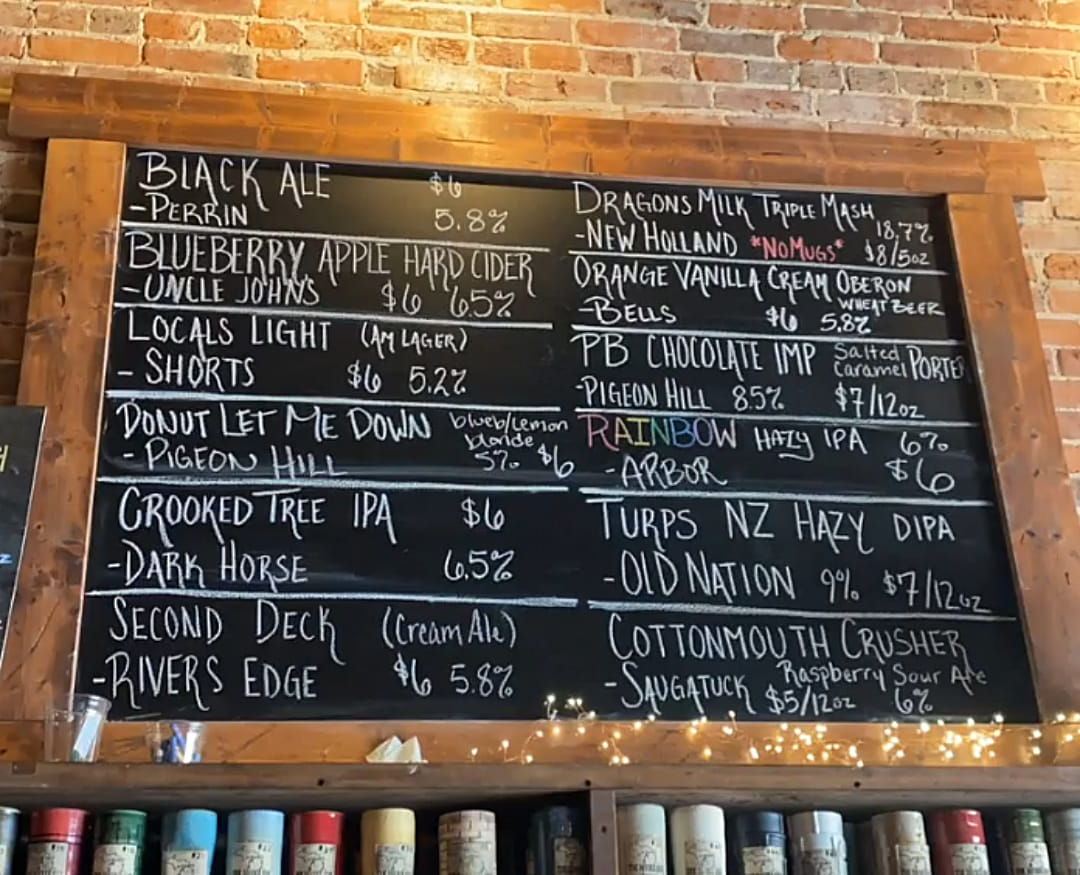 BLACK ALE $6
-PERRIN 5.8%
BLUEBERRY APPLE HARD CIDER
-UNCLE JOHNS $6 6.5%
LOCALS LIGHT (AM LAGER)
- SHORTS $6 5.2%
DONUT LET ME DOWN blueb/lemon
blonde
- PIGEON HILL 5% $6
CROOKED TREE IPA $6
-DARK HORSE 6.5%
SECOND DECK (Cream Ale)
-RIVERS EDGE $6 5.8%
DRAGONS MILK TRIPLE MASH
18.7%
-NEW HOLLAND *NO MUGS* $8/5oz
ORANGE VANILLA CREAM OBERON
WHEAT BEER
-BELLS $6 5.8%
PB CHOCOLATE IMP Salted
Caramel PORTER
-PIGEON HILL 8.5% $7/12oz
RAINBOW HAZY IPA 6%
-ARBOR $6
TURPS NZ HAZY DIPA
-OLD NATION 9% $7/12oz
COTTONMOUTH CRUSHER
Raspberry Sour Ale
-SAUGATUCK $5/12oz 6%